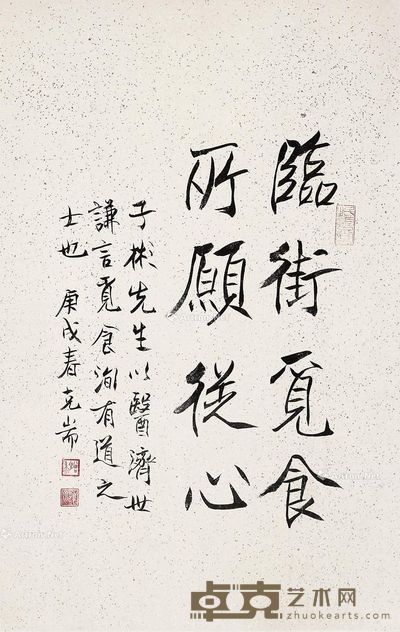 臨街覓食
所願從心
子彬先生以醫濟世
謙言覓食洵有道之
士也 庚戌春克耑
卓克艺术网
zhuokearts.com